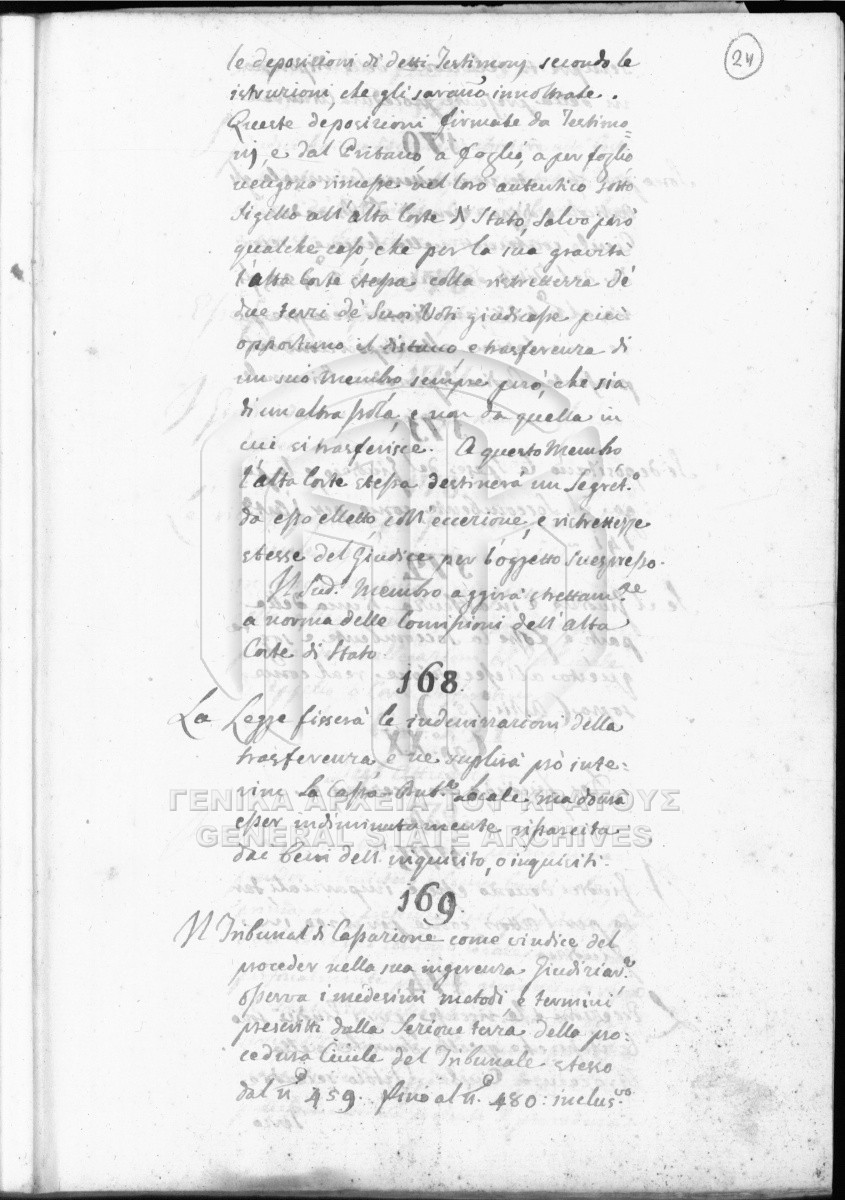 24
le deposizioni di detti Testimonj secondo le
istruzioni, che gli saranno innoltrate.
Queste deposizioni firmate da Testimo=
nj, e dal Pritano, a foglio, a per foglio
vengono rimesse nel loro autentico sotto
Sigillo all' alta Corte di Stato, Salvo però
qualche caso, che per la sua gravità
l'alta Corte stessa colla ristrettezza de'
due terzi de' Suoi Voti giudicasse più
opportuno il distacco, e trasferenza di
un suo Membro sempre però, che sia
di un altra Isola, e non da quella in
cui si trasferisce. A questo Membro
l'alta Corte stessa destinerà un Segret.o
da esso elletto coll' eccezione, e ristrettezze
stesse del Giudice per l'oggetto suespresso.
Il Sud.o Membro aggirà strettam.te
a norma delle Comissioni dell' alta
Corte di Stato.
168.
La Legge fisserà le indenizzazioni della
trasferenza e ne suplirà prò inte=
rim la Cassa Pub.ca locale, ma dovrà
esser indiminutamente risarcita
dai beni dell' inquisito, o inquisiti.
169.
Il Tribunal di Cassazione come vindice del
proceder nella sua ingerenza Giudiziar.a
osserva i medesimi metodi e termini
prescritti dalla Sezione terza della pro=
cedura Civile del Tribunale stesso
dal n.o 459. fino al n.o 480: inclus.vo
ΓΕΝΙΚΑ ΑΡΧΕΙΑ ΤΟΥ ΚΡΑΤΟΥΣ
GENERAL STATE ARCHIVES